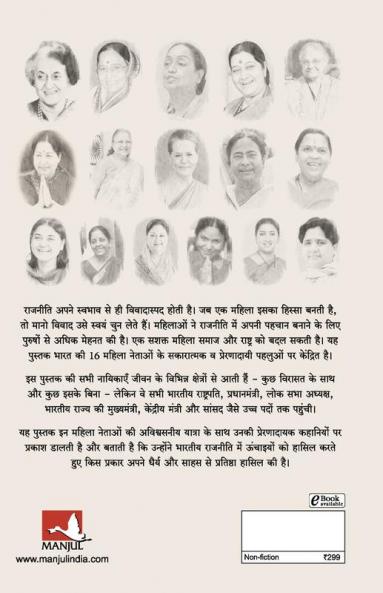 राजनीति अपने स्वभाव से ही विवादास्पद होती है। जब एक महिला इसका हिस्सा बनती है,
तो मानो विवाद उसे स्वयं चुन लेते हैं। महिलाओं ने राजनीति में अपनी पहचान बनाने के लिए
पुरुषों से अधिक मेहनत की है। एक सशक्त महिला समाज और राष्ट्र को बदल सकती है। यह
पुस्तक भारत की 16 महिला नेताओं के सकारात्मक व प्रेरणादायी पहलुओं पर केंद्रित है।
इस पुस्तक की सभी नायिकाएँ जीवन के विभिन्न क्षेत्रों से आती हैं - कुछ विरासत के साथ
और कुछ इसके बिना - लेकिन वे सभी भारतीय राष्ट्रपति, प्रधानमंत्री, लोक सभा अध्यक्ष,
भारतीय राज्य की मुख्यमंत्री, केंद्रीय मंत्री और सांसद जैसे उच्च पदों तक पहुंची।
यह पुस्तक इन महिला नेताओं की अविश्वसनीय यात्रा के साथ उनकी प्रेरणादायक कहानियों पर
प्रकाश डालती है और बताती है कि उन्होंने भारतीय राजनीति में ऊंचाइयों को हासिल करते
हुए किस प्रकार अपने धैर्य और साहस से प्रतिष्ठा हासिल की है।
eBook
available
MANJUL
www.manjulindia.com
Non-fiction ₹299